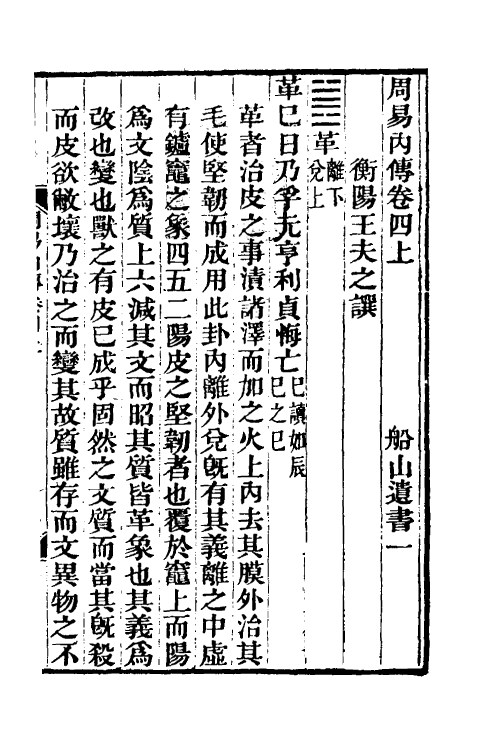 周易內傳卷四上 船山遺書一
衡陽王夫之譔
䷰革 離下兌上
革巳日乃孚元亨利貞悔亡 巳讀如辰巳之巳
革者治皮之事漬諸澤而加之火上內去其膜外治其
毛使堅韌而成用此卦內離外兌旣有其義離之中虛
有鑪竈之象四五二陽皮之堅韌者也覆於竈上而陽
爲文陰爲質上六減其文而昭其質皆革象也其義爲
改也變也獸之有皮已成乎固然之文質而當其旣殺
而皮欲敝壞乃治之而變其故質雖存而文異物之不